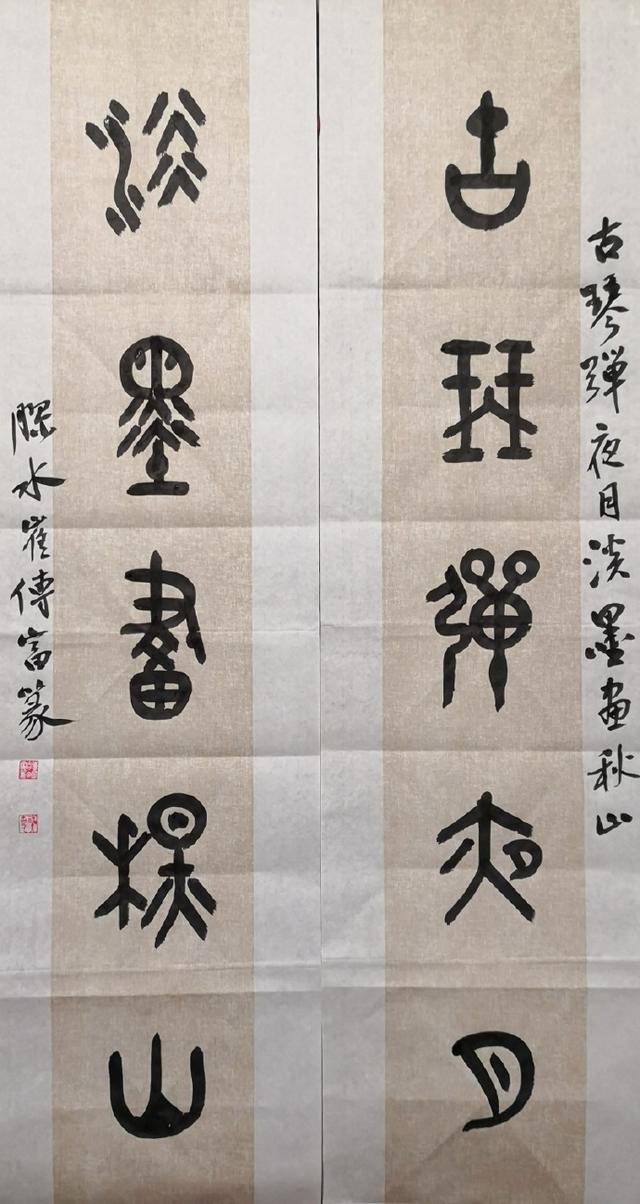 古琴彈夜月淡墨画秋山
古琴彈夜月
淡墨畫秋山
膠水崔傳富篆